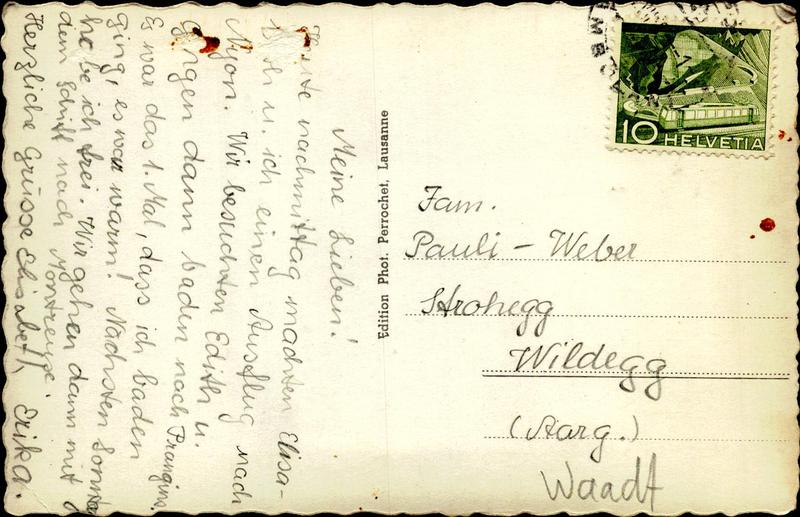 Meine Lieben!
Heute nachmittag machten Elisa-
beth u. ich einen Ausflug nach
Nyon. Wir besuchten Edith u.
gingen dann baden nach Prangins.
Es war das 1. Mal, dass ich baden
ging, es war warm! Nächsten Sonntag
habe ich frei. Wir gehen dann mit
dem Schiff nach Montreux.
Herzliche Grüsse Elisabeth, Erika.
Edition Phot. Perrochet, Lausanne
10 HELVETIA
Fam.
Pauli - Weber
Strohegg
Wildegg
(Aarg.)
Waadt